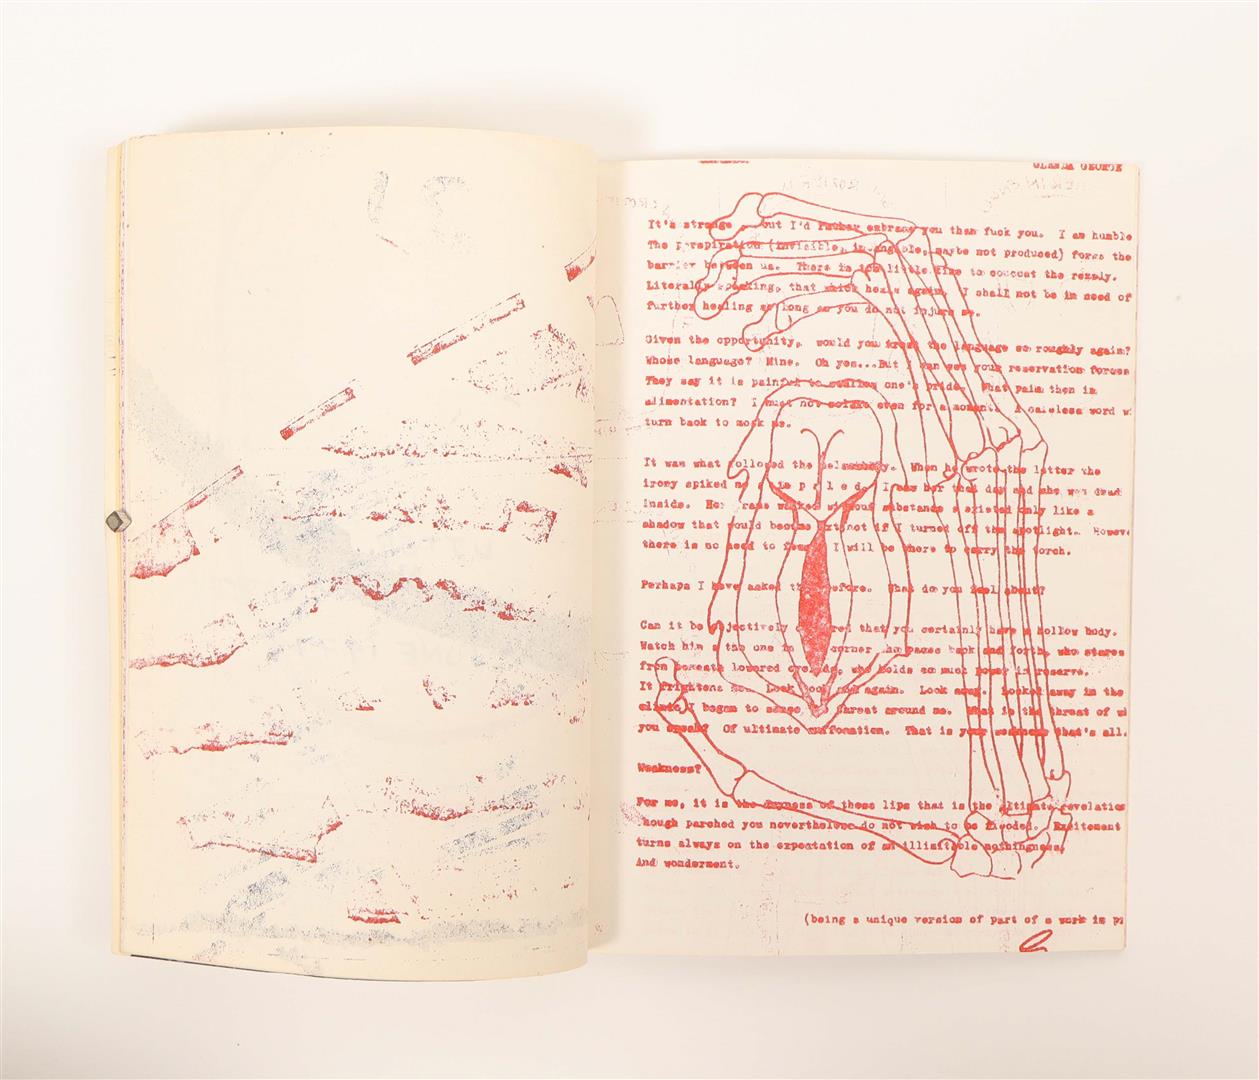 GLENDA GEORGE
It's strange but I'd rather embrace you than fuck you. I am humble
The perspiration (invisible, intangible, maybe not produced) forms the
barrier between us. There is too little time to concoct the remedy.
Literally speaking, that which heals again. I shall not be in need of
further healing as long as you do not injure me.
Given the opportunity, would you treat the language so roughly again?
Whose language? Mine. Oh yes...But I can see your reservation forces
They say it is painful to swallow one's pride. What pain then in
alimentation? I must not so even for a moment. A careless word w
turn back to mock me.
It was what followed the . When he wrote the letter the
irony spiked me i m p a l e d. I saw her that day and she was dead
inside. Her frame walked without substance & existed only like a
shadow that would become extinct if I turned off the spotlight. Howeve
there is no need to fear I will be there to carry the torch.
Perhaps I have asked this before. What do you feel about?
Can it be objectively that you certainly have a hollow body.
Watch him & the one in corner who paces back and forth, who stares
from beneath lowered eyelids, who holds so much power in reserve.
It frightens me. Look look again. Look away. Looked away in the
I began to sense threat around me. What is the threat of wh
you speak? Of ultimate malformation. That is your weakness that's all.
Weakness?
For me, it is the dryness of these lips that is the ultimate revelation
hough parched you nevertheless do not wish to be flooded. Excitement
turns always on the expectation of an illimitable nothingness.
And wonderment.
(being a unique version of part of a work in pr